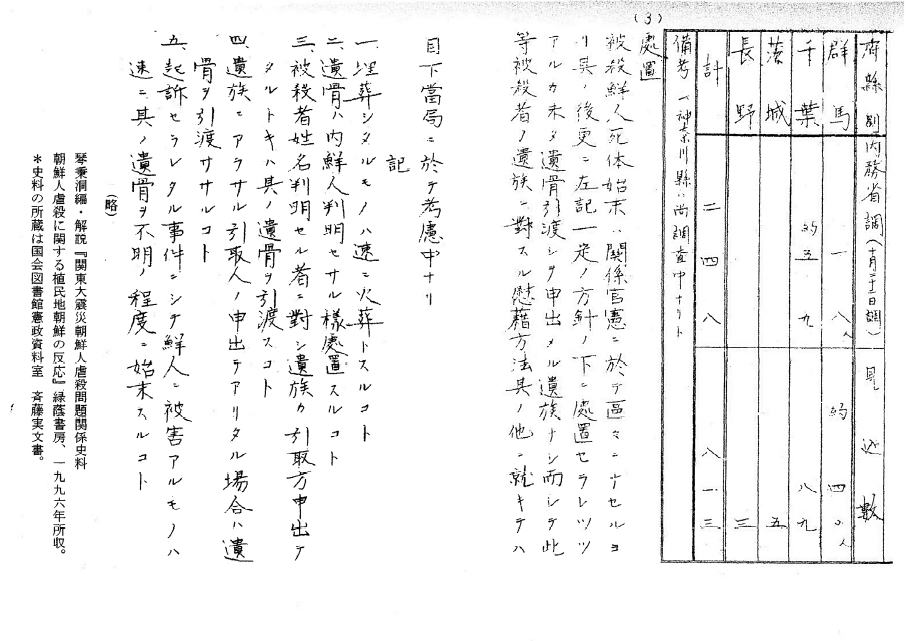 (3)
府縣別 内務省調(十月二十二日調) 見込數
群馬 一八人 約四〇人
千葉 約五九 八九
茨城 五
長野 三
計 二四八 八一三
備考 神奈川縣ハ尚調査中ナリト
處置
被殺鮮人死体始末ハ関係官憲ニ於テ區々ニナセルヨ
リ其ノ後更ニ左記一定ノ方針ノ下ニ處置セラレツツ
アルカ未タ遺骨引渡シヲ申出メル遺族ナシ而シテ此
等被殺者ノ遺族ニ對スル慰藉方法其ノ他ニ就キテハ
目下當局ニ於テ考慮中ナリ
記
一、埋葬シタルモノハ速ニ火葬トスルコト
二、遺骨ハ内鮮人判明セサル様處置スルコト
三、被殺者姓名判明セル者ニ對シ遺族カ引取方申出テ
タルトキハ其ノ遺骨ヲ引渡スコト
四、遺族ニアラサル引取人ノ申出テアリタル場合ハ遺
骨ヲ引渡ササルコト
五、起訴セラレタル事件ニシテ鮮人ニ被害アルモノハ
速ニ其ノ遺骨ヲ不明ノ程度ニ始末スルコト
(略)
琴秉洞編・解説『関東大震災朝鮮人虐殺問題関係史料
朝鮮人虐殺に関する植民地朝鮮の反応』緑蔭書房、一九九六年所収。
*史料の所蔵は国会図書館憲政資料室 斉藤実文書。